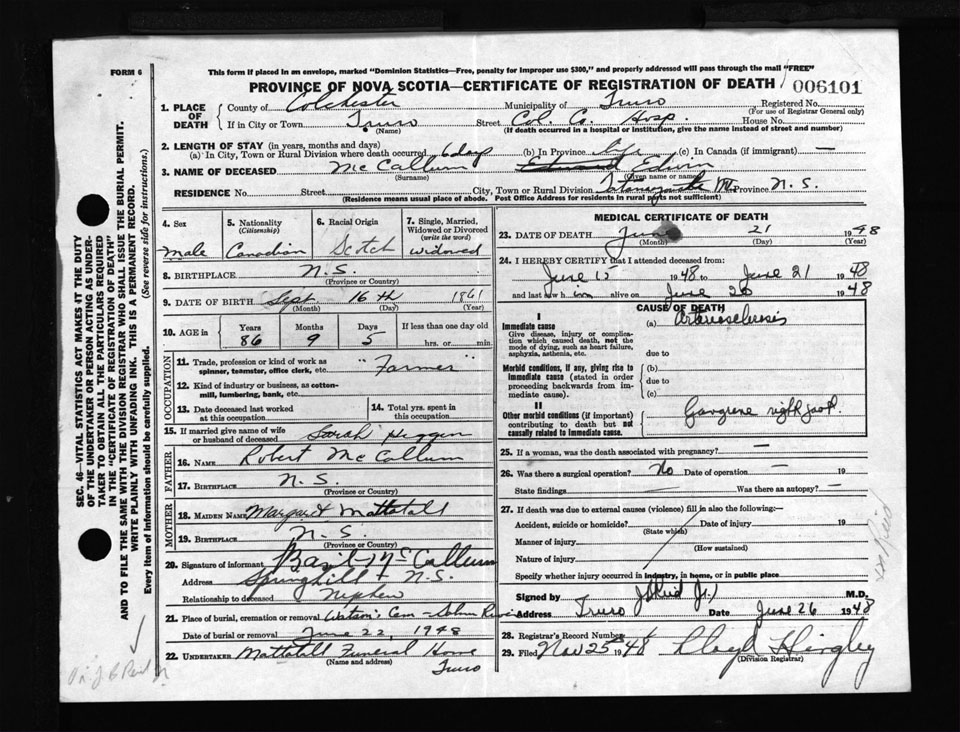 FORM 6
This form if placed in an envelope, marked "Dominion Statistics—Free, penalty for improper use $300," and properly addressed will pass through the mail "FREE"
PROVINCE OF NOVA SCOTIA—CERTIFICATE OF REGISTRATION OF DEATH
006101
1. PLACE OF DEATH
County of Colchester Municipality of Truro Registered No.
(For use of Registrar General only)
If in City or Town Truro Street Col. Co. Hosp. House No.
(Name) (If death occurred in a hospital or institution, give the name instead of street and number)
2. LENGTH OF STAY (in years, months and days)
(a) In City, Town or Rural Division where death occurred 6 days (b) In Province life (c) In Canada (if immigrant) —
3. NAME OF DECEASED McCallum Edward Edwin
(Surname) (Given name or names)
RESIDENCE No. Street City, Town or Rural Division Tatamagouche Mt Province N. S.
(Residence means usual place of abode. Post Office Address for residents in rural parts not sufficient)
4. Sex
Male
5. Nationality
(Citizenship)
Canadian
6. Racial Origin
Scotch
7. Single, Married, Widowed or Divorced
(write the word)
widowed
8. BIRTHPLACE N.S.
(Province or Country)
9. DATE OF BIRTH Sept 16th 1861
(Month) (Day) (Year)
10. AGE in Years Months Days If less than one day old
86 9 5 hrs. or min.
OCCUPATION
11. Trade, profession or kind of work as spinner, teamster, office clerk, etc. "Farmer"
12. Kind of industry or business, as cotton-mill, lumbering, bank, etc.
13. Date deceased last worked at this occupation
14. Total yrs. spent in this occupation
15. If married give name of wife or husband of deceased Sarah
FATHER
16. NAME Robert McCallum
17. BIRTHPLACE N. S.
(Province or Country)
MOTHER
18. MAIDEN NAME Margaret Mattatall
19. BIRTHPLACE N. S.
(Province or Country)
20. Signature of informant Basil McCallum
Address Springhill N.S.
Relationship to deceased Nephew
21. Place of burial, cremation or removal Watson Cem -
Date of burial or removal June 22, 1948
22. UNDERTAKER Mattatall Funeral Home
(Name and address) Truro
MEDICAL CERTIFICATE OF DEATH
23. DATE OF DEATH June 21 1948
(Month) (Day) (Year)
24. I HEREBY CERTIFY that I attended deceased from:
June 15 1948 to June 21 1948
and last saw him alive on June 20 1948
CAUSE OF DEATH
I
Immediate cause (a) Arteriosclerosis
Give disease, injury or complication which caused death, not the mode of dying, such as heart failure, asphyxia, asthenia, etc.
due to
Morbid conditions, if any, giving rise to immediate cause (stated in order proceeding backwards from immediate cause).
(b)
due to
(c)
II
Other morbid conditions (if important) contributing to death but not causally related to immediate cause.
Gangrene right foot.
25. If a woman, was the death associated with pregnancy? —
26. Was there a surgical operation? No Date of operation — 19
State findings Was there an autopsy? —
27. If death was due to external causes (violence) fill in also the following:—
Accident, suicide or homicide? Date of injury 19
(State which)
Manner of injury
(How sustained)
Nature of injury
Specify whether injury occurred in industry, in home, or in public place
Signed by J B Reid Jr. M.D.
Address Truro Date June 26 1948
28. Registrar's Record Number
29. Filed Nov 25 1948 Lloyd Hingley
(Division Registrar)
SEC. 46—VITAL STATISTICS ACT MAKES IT THE DUTY
OF THE UNDERTAKER OR PERSON ACTING AS UNDER-
TAKER TO OBTAIN ALL THE PARTICULARS REQUIRED
IN THE "CERTIFICATE OF REGISTRATION OF DEATH"
AND TO FILE THE SAME WITH THE DIVISION REGISTRAR WHO SHALL ISSUE THE BURIAL PERMIT.
WRITE PLAINLY WITH UNFADING INK. THIS IS A PERMANENT RECORD.
Every item of information should be carefully supplied. (See reverse side for instructions.)